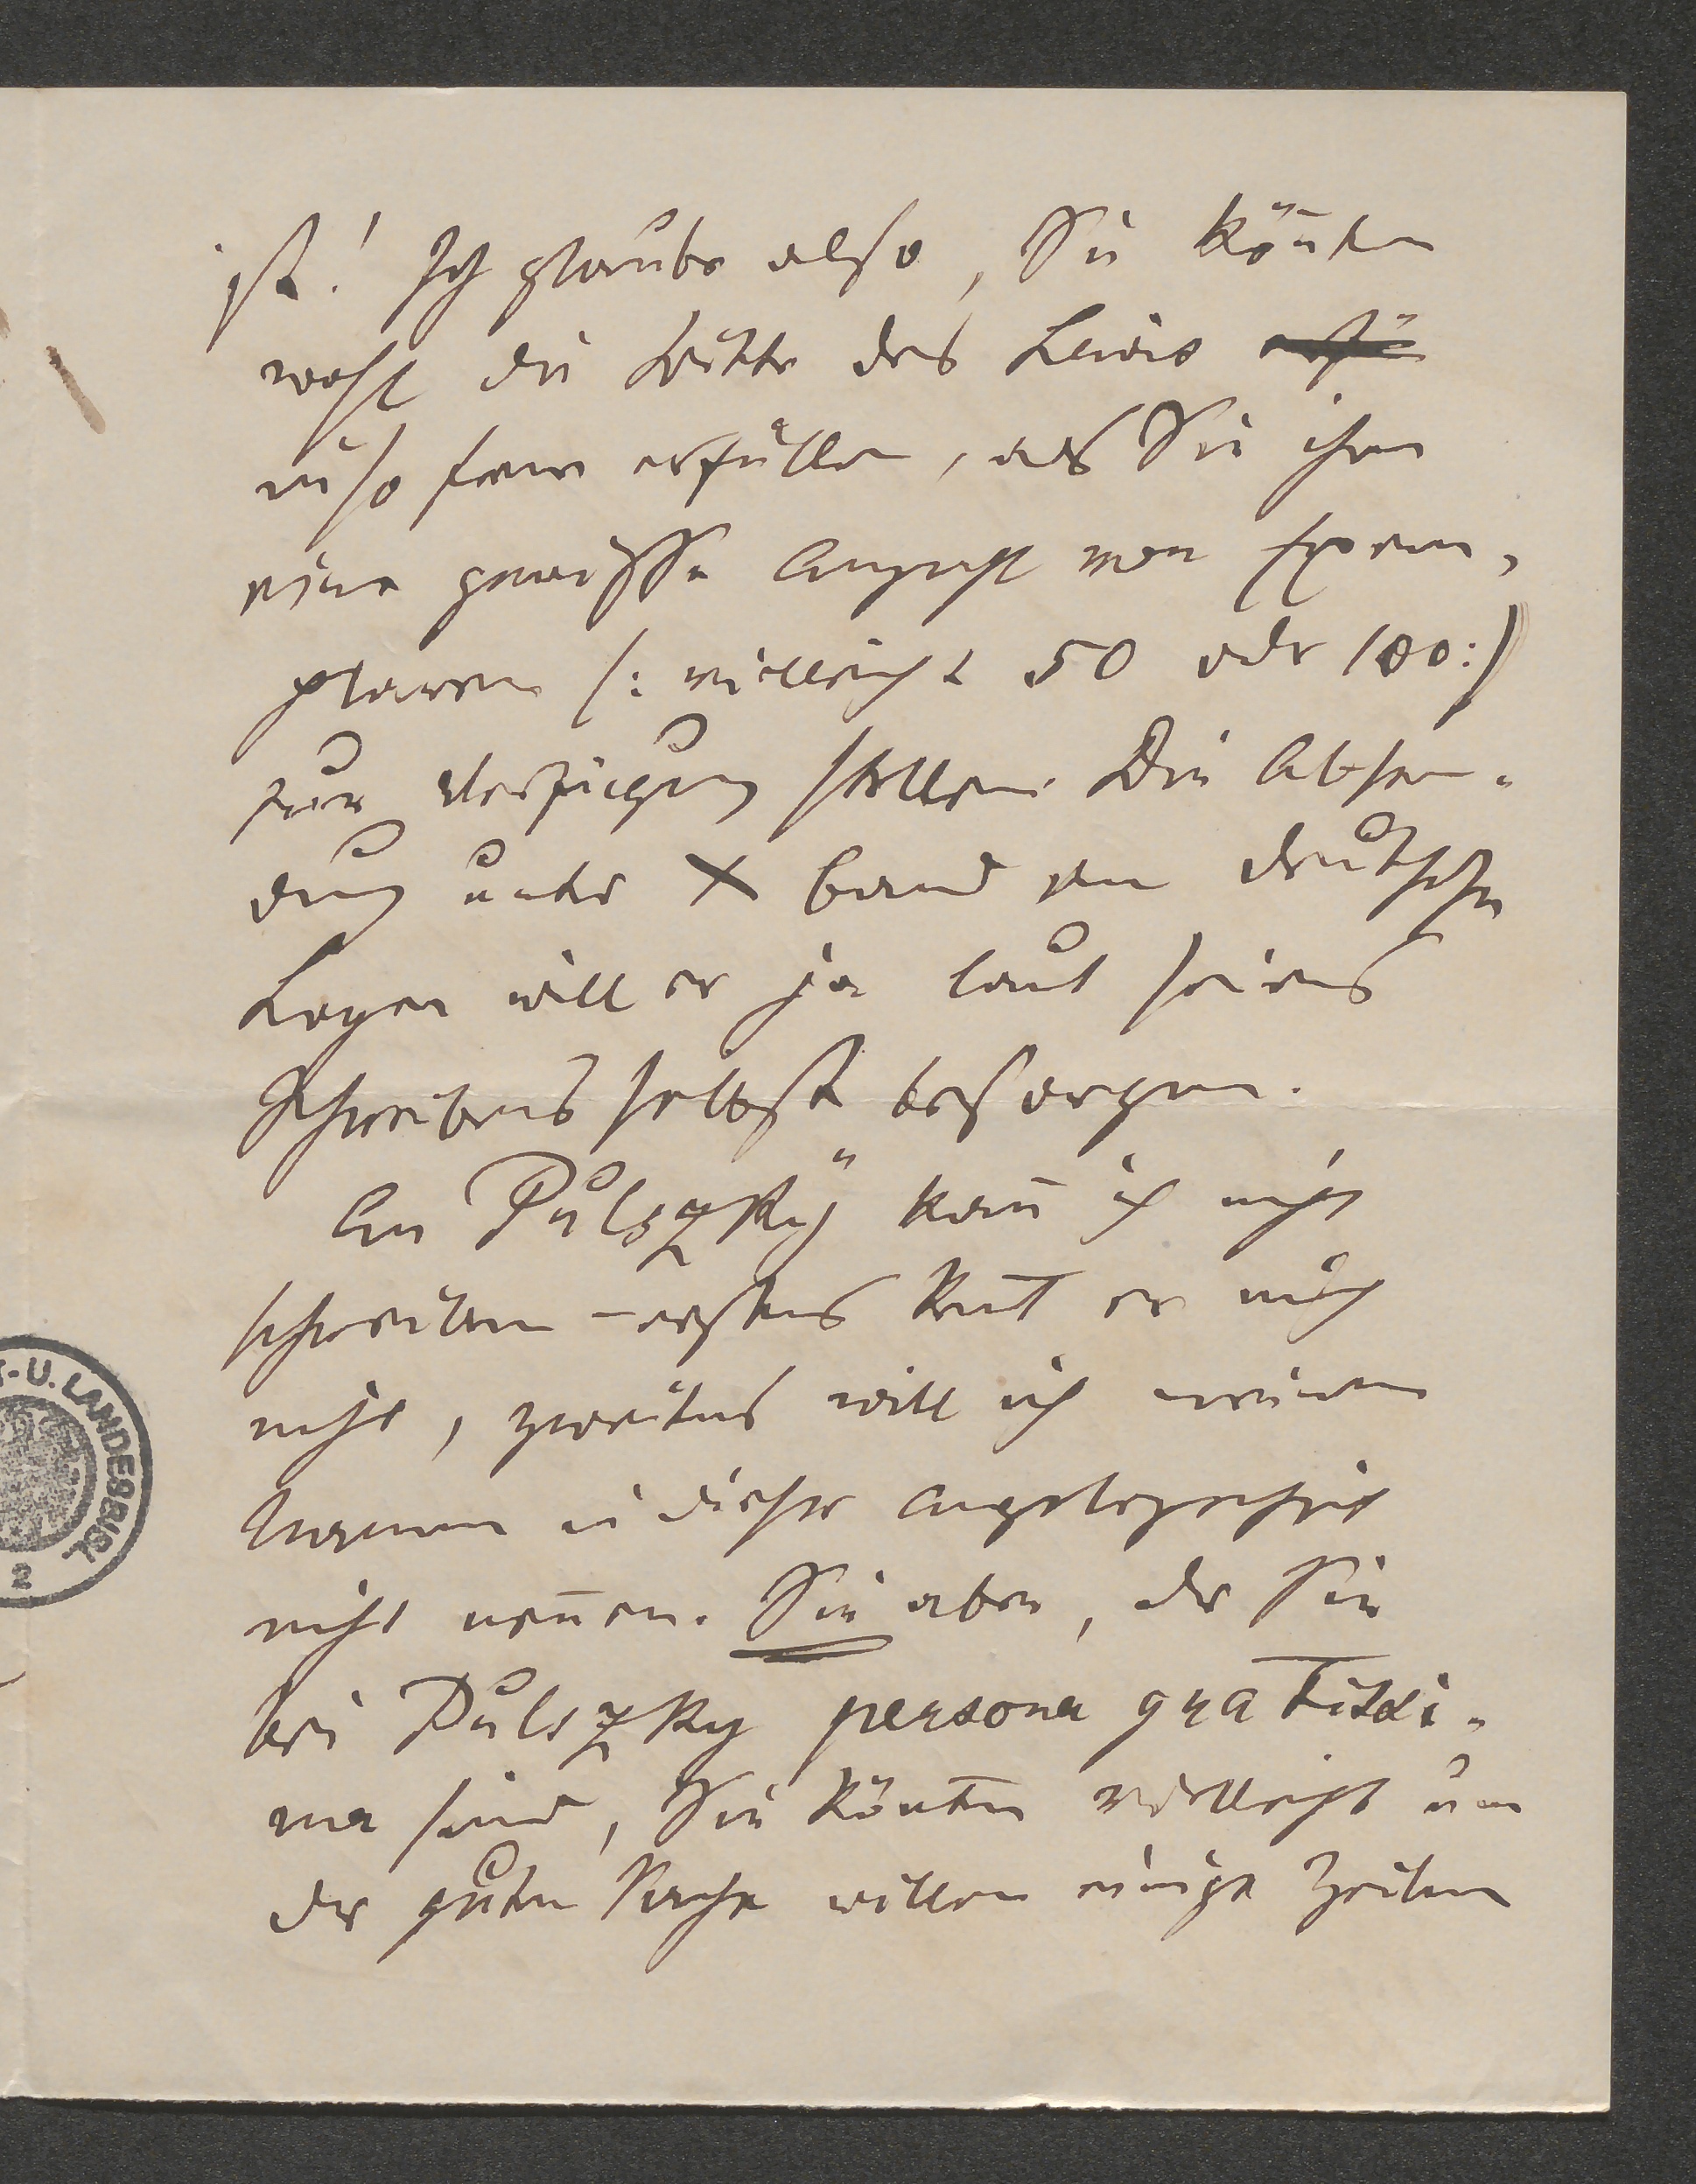 ist! Ich glaube also, Sie kön̄ten
wohl die Bitte des Lewis erfü
in so fern erfüllen, als Sie ihm
eine gewisse Anzahl von Exem-
plaren (: vielleicht 50 oder 100:)
zur Verfügung stellen. Die Absen-
dung unter X band an deutsche
Logen will er ja laut seines
Schreibens selbst besorgen.
An Pulszky kan̄ ich nicht
schreiben – erstens ken̄t er mich
nicht, zweitens will ich meinen
Namen in dieser Angelegenheit
nicht nen̄en. Sie aber, der Sie
bei Pulszky persona gratissi-
ma sind, Sie kön̄ten vielleicht um
der guten Sache willen einige Zeilen
T.-U. LANDESBIBL
2